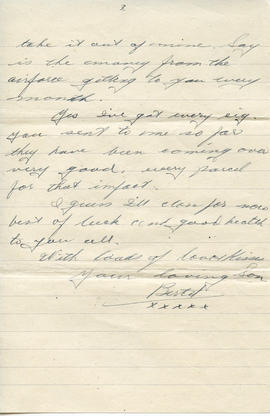 take it out of mine. Say
is the money from the
airforce getting to you every
month.
Yes I've got every cig.
you sent to me so far
they have been coming over
very good, every parcel
for that impact.
I guess I'll close for now
best of luck and good health
to you all.
With loads of love & kisses
Your loving Son
Bert
xxxxx